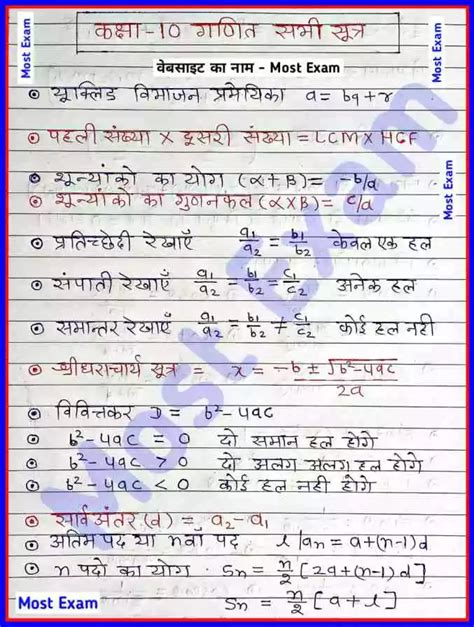 Most Exam
Most Exam
कक्षा-10 गणित सभी सूत्र
वेबसाइट का नाम - Most Exam
यूक्लिड विभाजन प्रमेयिका a = bq + r
पहली संख्या × दूसरी संख्या = LCM × HCF
शून्यांको का योग (α + β) = -b/a
शून्यांको का गुणनफल (α × β) = c/a
Most Exam
प्रतिच्छेदी रेखाएँ a₁/a₂ = b₁/b₂ केवल एक हल
संपाती रेखाएँ a₁/a₂ = b₁/b₂ = c₁/c₂ अनेक हल
समान्तर रेखाएँ a₁/a₂ = b₁/b₂ ≠ c₁/c₂ कोई हल नही
श्रीधराचार्य सूत्र x = -b ± √b²-4ac / 2a
विवित्तकर D = b² - 4ac
b² - 4ac = 0 दो समान हल होंगे
b² - 4ac > 0 दो अलग अलग हल होंगे
b² - 4ac < 0 कोई हल नही होगे
सार्व अंतर (d) = a₂ - a₁
अंतिम पद या nवाँ पद l/an = a + (n-1)d
n पदो का योग Sn = n/2 [2a + (n-1)d]
Sn = n/2 [a + l]
Most Exam
Most Exam